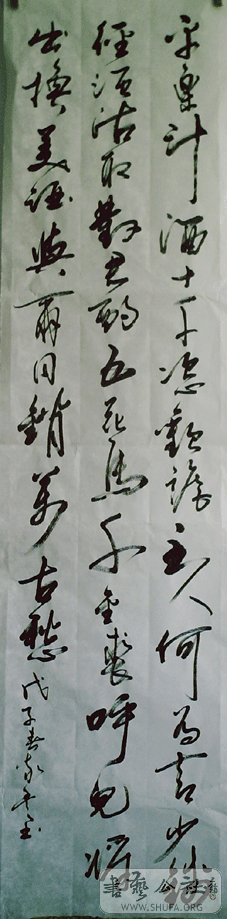 平樂斗酒十千恣歡謔主人何為言少錢
徑須沽取對君酌五花馬千金裘呼兒將
出換美酒與爾同銷萬古愁戊子春
書藝公社
WWW.SHUFA.ORG